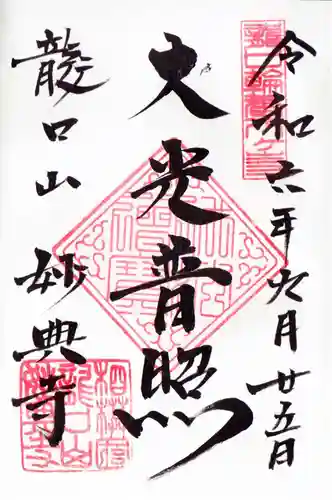 令和六年九月廿五日
大光普照
龍口山 妙典寺